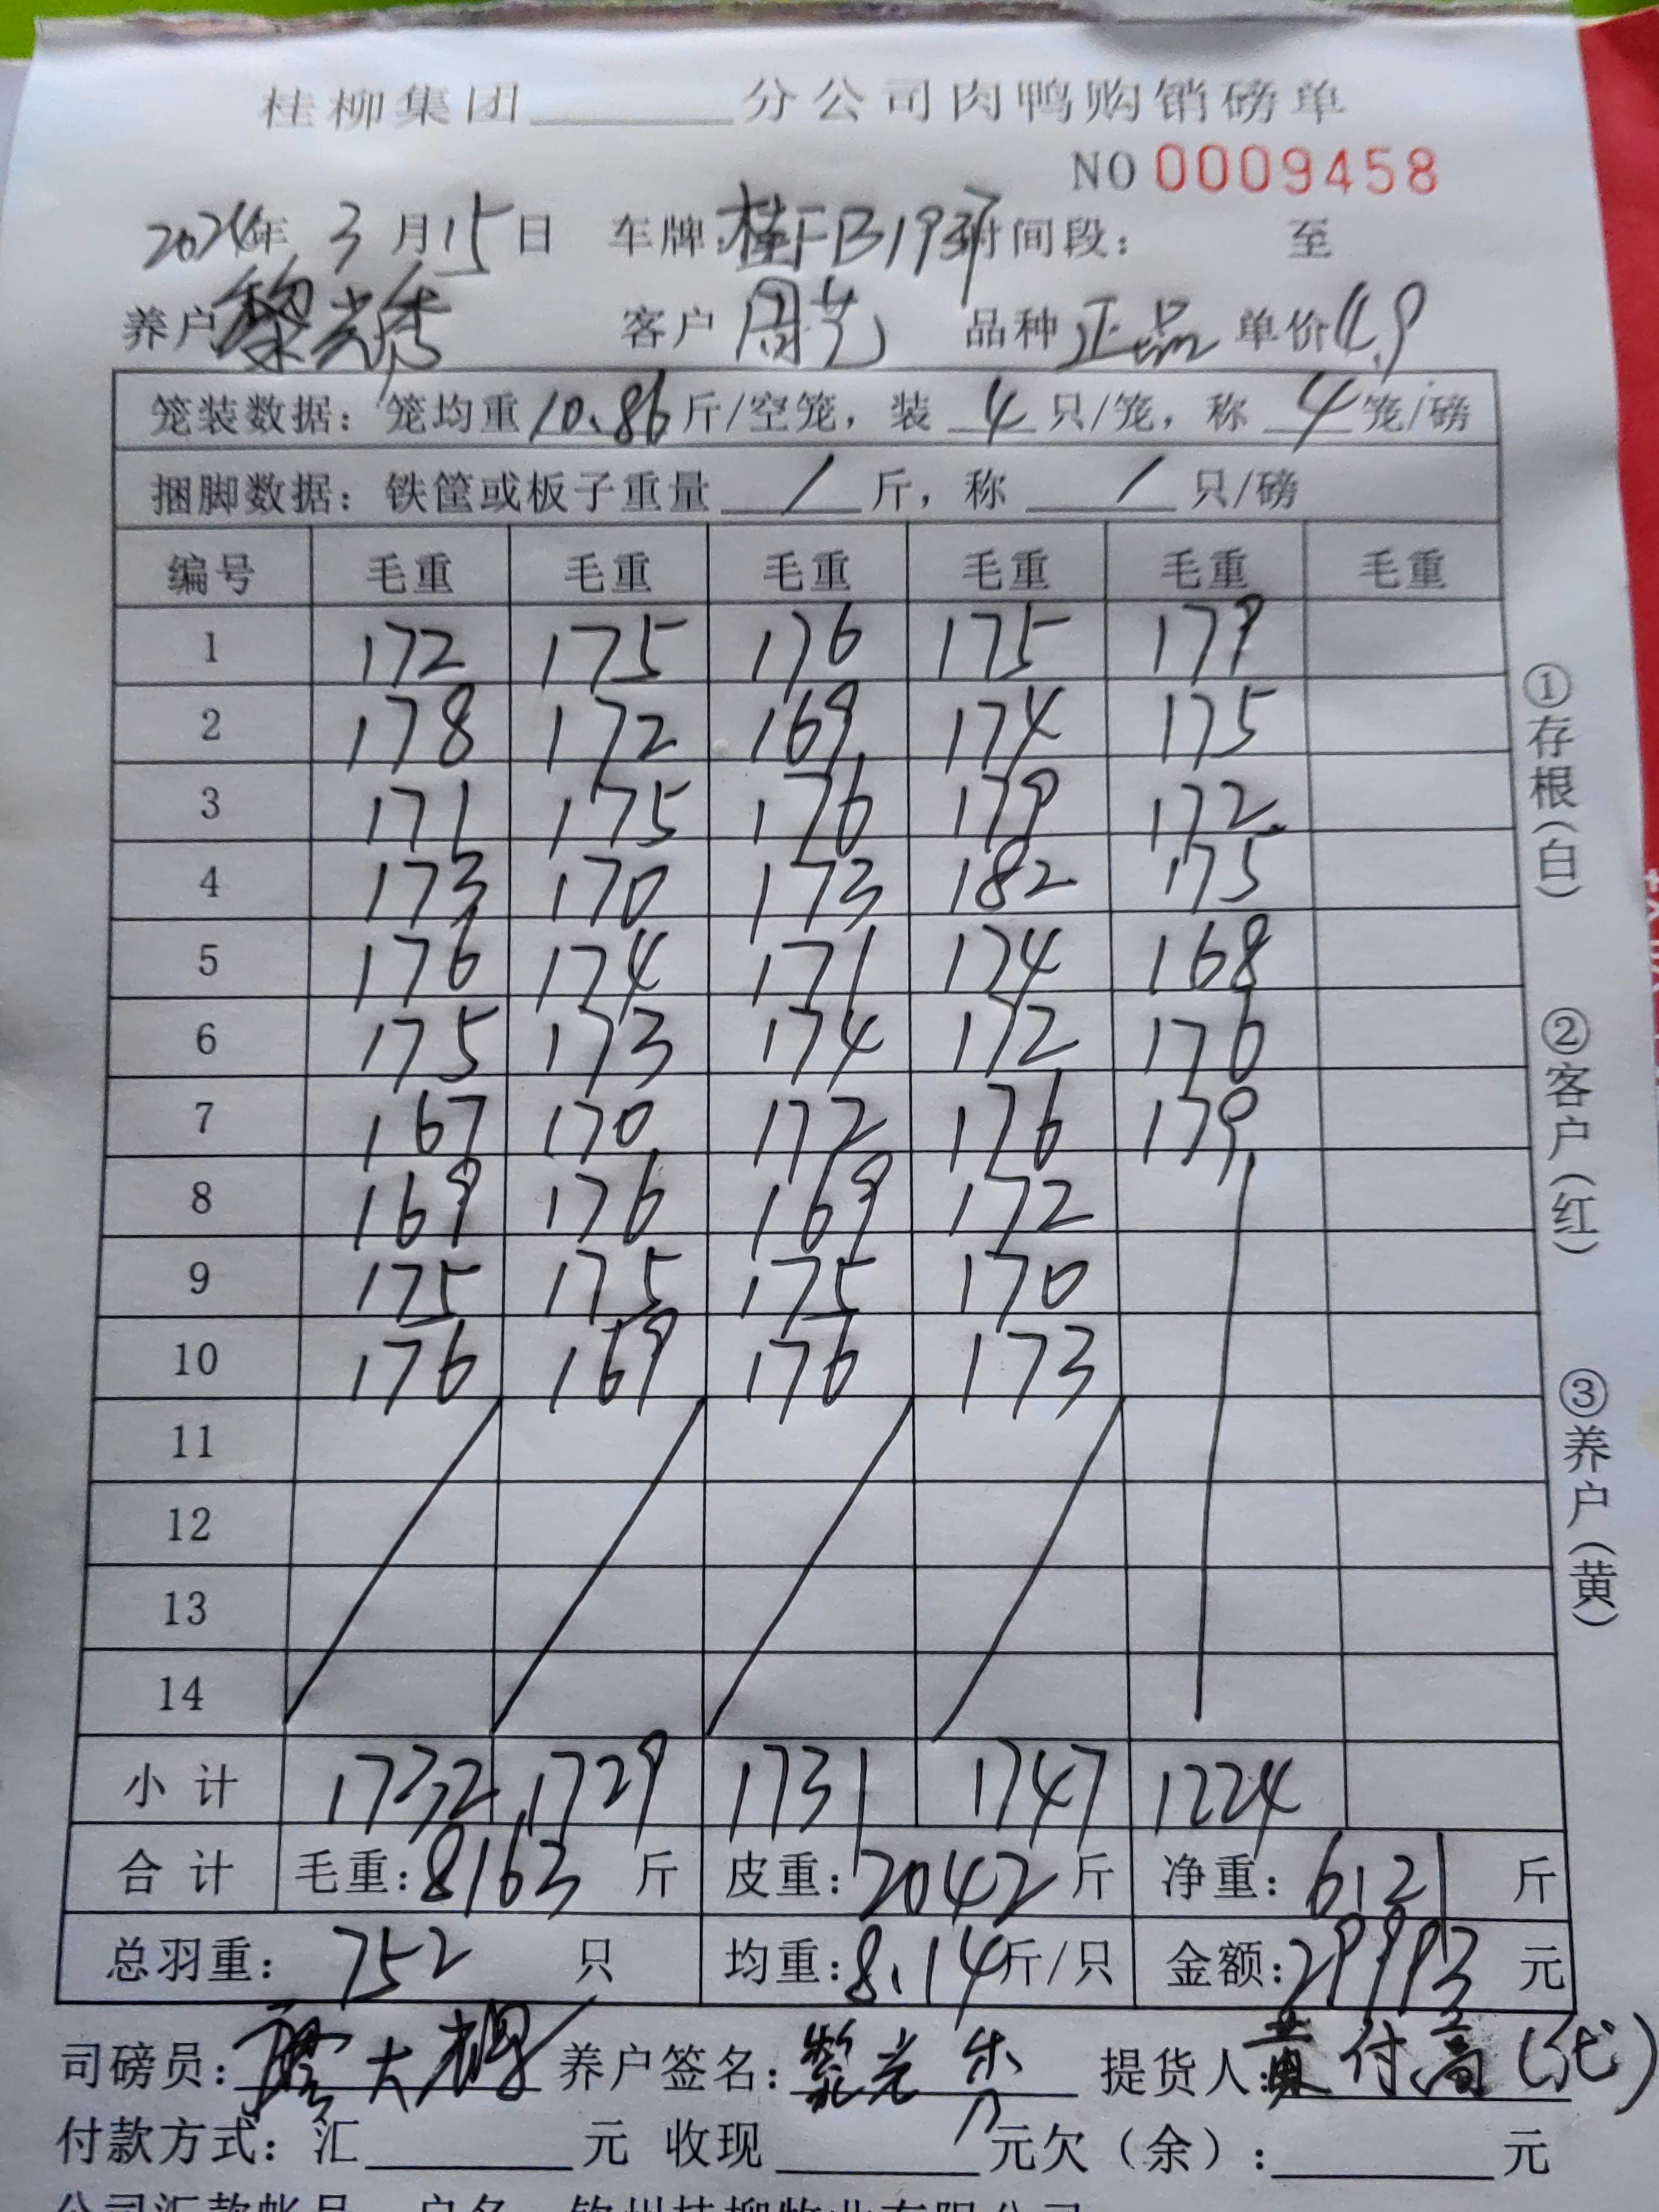 桂柳集团______分公司肉鸭购销磅单
NO 0009458
2024年 3 月15日 车牌:桂FB1937 时间段: 至
养户 黎光秀 客户 周艺 品种 正品 单价 4.9
笼装数据: 笼均重 10.86 斤/空笼, 装 4 只/笼, 称 4 笼/磅
捆脚数据: 铁筐或板子重量 / 斤, 称 / 只/磅
编号 毛重 毛重 毛重 毛重 毛重 毛重
1 172 175 176 175 179
2 178 172 169 174 175
3 171 175 176 179 172
4 173 170 173 182 175
5 176 174 171 174 168
6 175 173 174 172 176
7 167 170 172 176 179
8 169 176 169 172
9 175 175 175 170
10 176 169 176 173
11
12
13
14
小计 1732 1729 1731 1747 1224
合计 毛重: 8163 斤 皮重: 2042 斤 净重: 6121 斤
总羽重: 752 只 均重: 8.14 斤/只 金额: 29993 元
司磅员: 大 养户签名: 黎光秀 提货人: 黄付高(代)
付款方式: 汇______元 收现______元欠(余):______元
公司汇款帐号 户名 钦州桂柳牧业有限公司
①存根(白)
②客户(红)
③养户(黄)